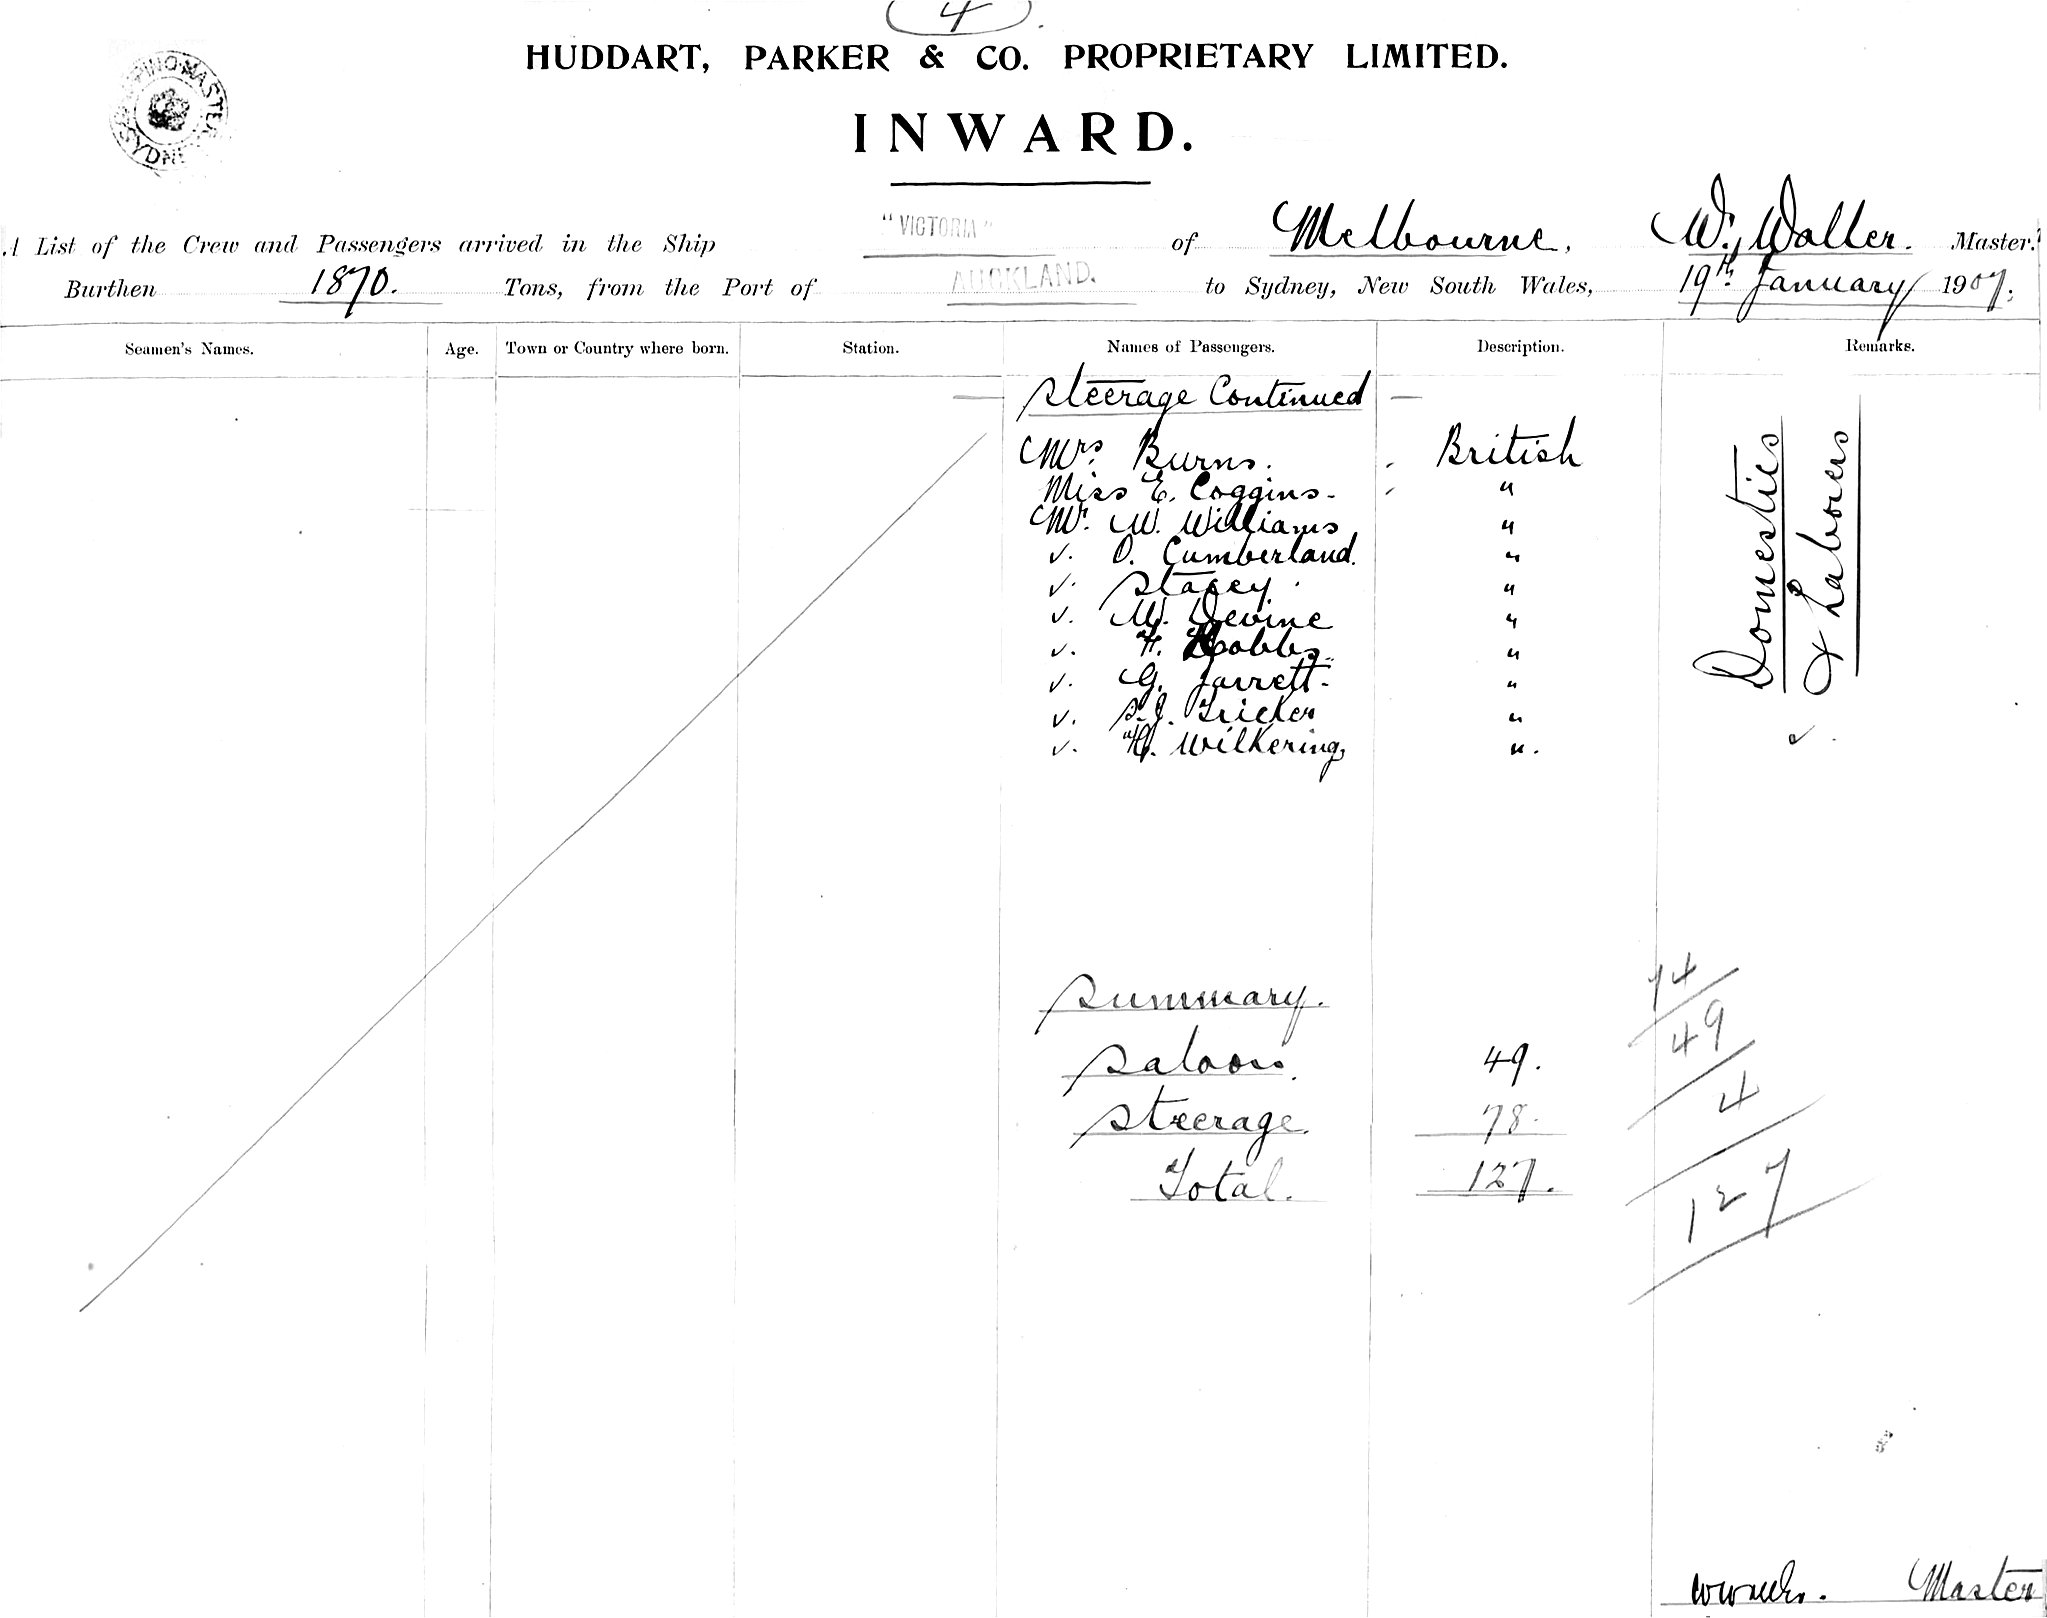 4
HUDDART, PARKER & CO. PROPRIETARY LIMITED.
INWARD.
SHIPPING MASTER SYDNEY
A List of the Crew and Passengers arrived in the Ship "VICTORIA" of Melbourne, W. Waller. Master.
Burthen 1870. Tons, from the Port of AUCKLAND. to Sydney, New South Wales, 19th January 1907.
Seamen's Names. Age. Town or Country where born. Station. Names of Passengers. Description. Remarks.
Steerage Continued
Mrs. Burns. British
Miss E. Coggins. "
Mr. W. Williams "
v. O. Cumberland. "
v. Stacey. "
v. W. Devine "
v. H. Hobbs "
v. G. Jarrett. "
v. S.J. Tricker "
v. H. Wilkering "
Domestics
& Labourers
Summary.
Saloon. 49.
Steerage 78.
Total. 127.
74
49
4
127
Master